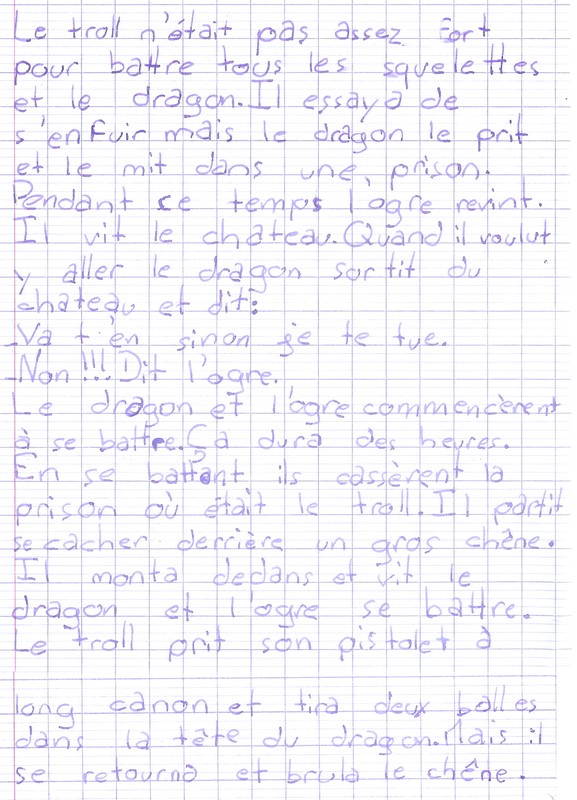 Le troll n'était pas assez fort
pour battre tous les squelettes
et le dragon. Il essaya de
s'enfuir mais le dragon le prit
et le mit dans une prison.
Pendant ce temps l'ogre revint.
Il vit le chateau. Quand il voulut
y aller le dragon sortit du
chateau et dit:
-Va t'en sinon je te tue.
-Non !!! Dit l'ogre.
Le dragon et l'ogre commencèrent
à se battre. Ça dura des heures.
En se battant ils cassèrent la
prison où était le troll. Il partit
se cacher derrière un gros chêne.
Il monta dedans et vit le
dragon et l'ogre se battre.
Le troll prit son pistolet à
long canon et tira deux balles
dans la tête du dragon. Mais il
se retourna et brula le chêne.